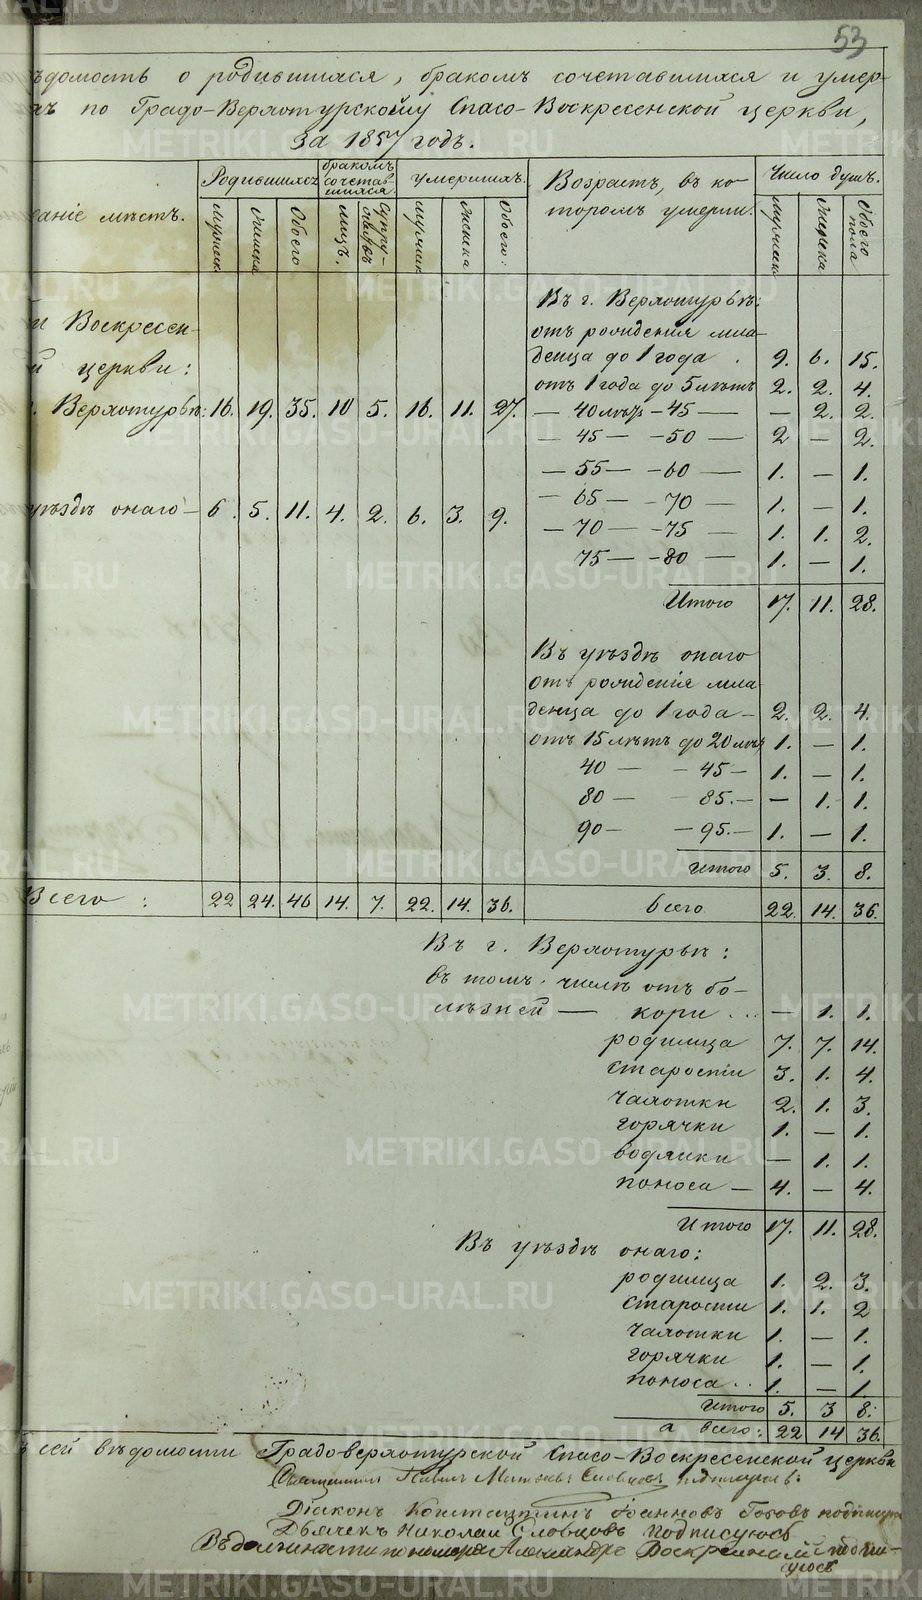 53
ѣдомость о родившихся, бракомъ сочетавшихся и умер-
хъ по Градо-Верхотурской Спасо-Воскресенской церкви,
За 1857 годъ.
Родившихся бракомъ сочетав- шихся. умершихъ. Возрастъ, въ ко- Число душъ.
ваніе мѣстъ. Мужеска Женска Обоего Лицъ. Супру- жествъ Мужеска Женска Обоего: торомъ умерли. Мужеска Женска Обоего пола
Въ г. Верхотурьѣ:
и Воскресен- отъ рожденія мла-
й церкви: денца до 1 года . 9. 6. 15.
отъ 1 года до 5 лѣтъ 2. 2. 4.
. Верхотурьѣ: 16. 19. 35. 10 5. 16. 11. 27. — 40 лѣтъ - 45 — — 2. 2.
— 45 — - 50 — 2 — 2.
— 55 — - 60 — 1. — 1.
уѣздѣ онаго — 6. 5. 11. 4. 2. 6. 3. 9. — 65 — - 70 — 1. — 1.
— 70 — - 75 — 1. 1. 2.
75 — - 80 — 1. — 1.
Итого 17. 11. 28.
Въ уѣздѣ онаго
отъ рожденія мла
денца до 1 года — 2. 2. 4.
отъ 15 лѣтъ до 20 лѣтъ 1. — 1.
40 — - 45 — 1. — 1.
80 — - 85. — — 1. 1.
90 — - 95. — 1. — 1.
Итого 5. 3. 8.
Всего : 22 24. 46 14. 7. 22. 14. 36. всего 22. 14. 36.
Въ г. Верхотурьѣ:
въ томъ числѣ отъ бо-
лѣзней — кори ... — 1. 1.
родимца 7. 7. 14.
старости 3. 1. 4.
чахотки 2. 1. 3.
горячки 1. — 1.
водянки — 1. 1.
поноса — 4. — 4.
Итого 17. 11. 28.
Въ уѣздѣ онаго:
родимца 1. 2. 3.
старости 1. 1. 2
чахотки 1. — 1.
горячки 1. — 1.
поноса .. 1. — 1.
Итого 5. 3 8.
а всего: 22 14 36.
сей вѣдомости Градоверхотурской Спасо-Воскресенской церкви
Священникъ Павелъ Словцовъ
Діаконъ Константинъ Іоанновъ подписуюсь
Дьячекъ Николай Словцовъ подписуюсь
Въ должности пономаря Александръ Воскресенскій подпи-
суюсь
METRIKI.GASO-URAL.RU